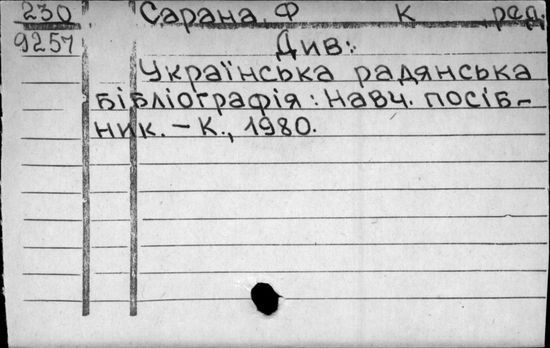 230 Сарана Ф К ред.
9257 Див:
Українська радянська
бібліографія: Навч. посіб-
ник. – К., 1980.